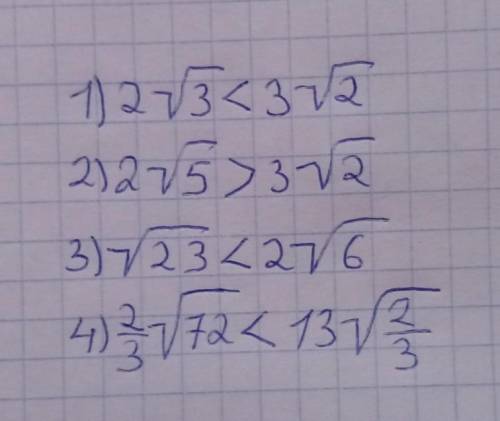 1) 2√3 < 3√2
2) 2√5 > 3√2
3) √23 < 2√6
4) 2/3 √72 < 13√2/3